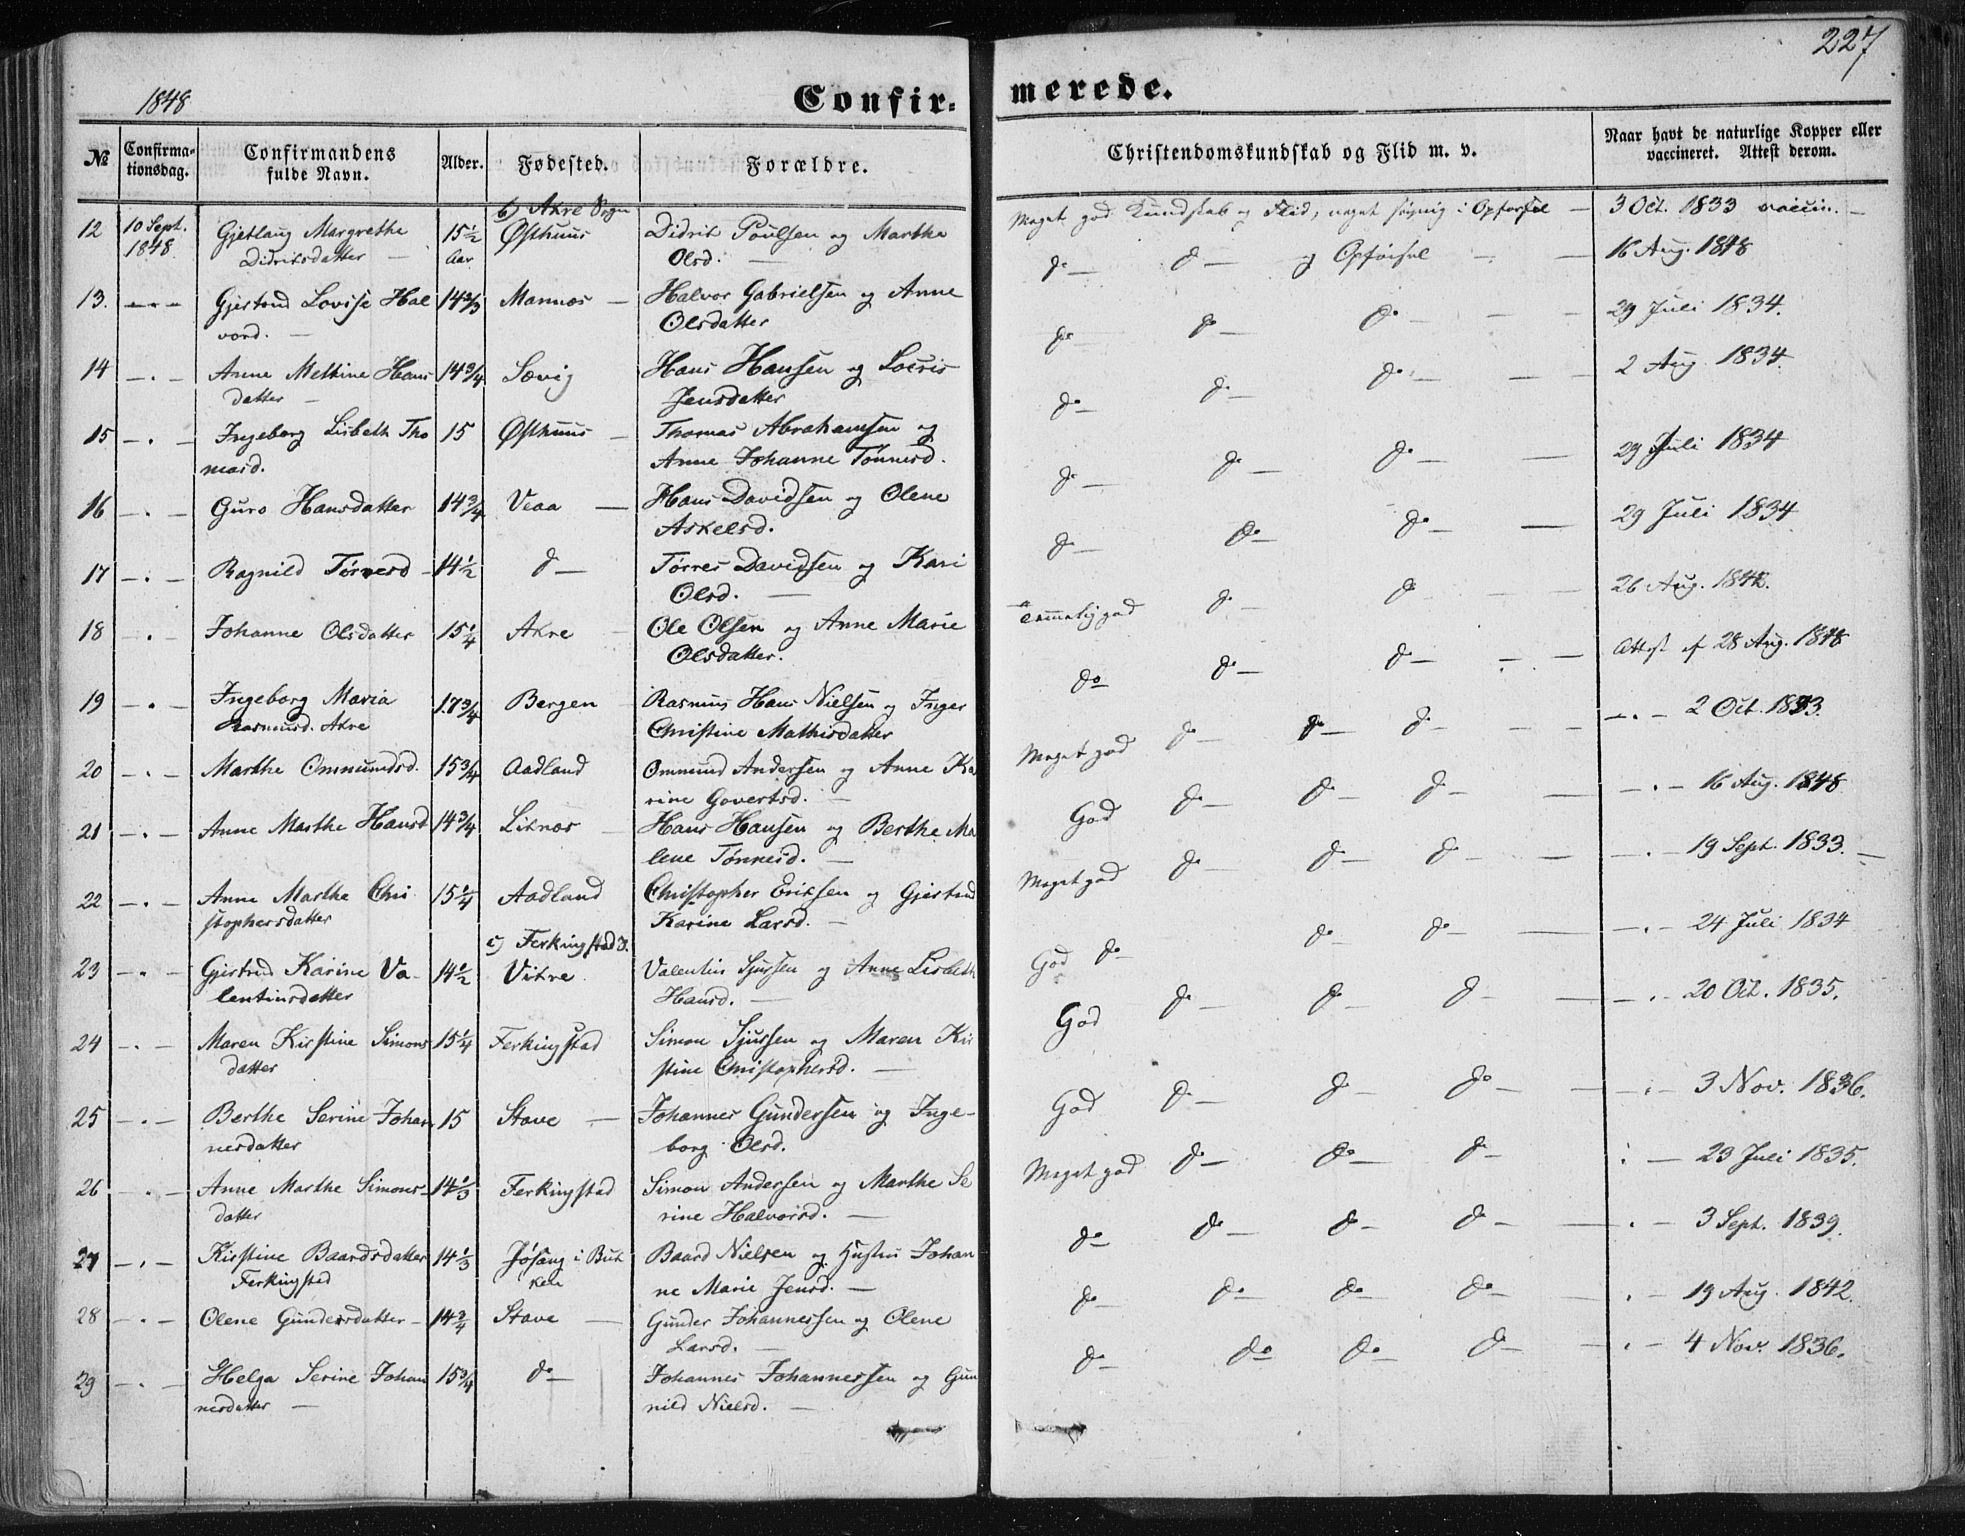 227
1848
Confirmerede.
№
Confirmationsdag.
Confirmandens fulde Navn.
Alder.
Fødested.
Forældre.
Christendomskundskab og Flid m. v.
Naar havt de naturlige Kopper eller vaccineret. Attest derom.
b) Akre Sogn
12 10 Sept. Gjetlaug Margrethe 15 1/2 Østhuus Didrik Poulsen og Marthe Meget god Kundskab og Flid, meget høvig i Opførsel — 3 Oct. 1833 vaccin. —
1848. Didriksdatter — Aar Olsd. —
13. — . — Gjertrud Lovise Hal 14 2/3 Mannæs — Halvor Gabrielsen og Anne do — do — og Opførsel — — 16 Aug. 1848
vord. — Olsdatter
14 — . — Anne Meltine Hans 14 3/4 Sævig Hans Hansen og Lovris do — do — do — — — 29 Juli 1834.
datter — Jensdatter
15 — . — Ingeborg Lisbeth Tho 15 Østhuus — Thomas Abrahamsen og do — do — do — — 2 Aug 1834.
masd. Anne Johanne Tønnesd.
16 — . — Guro Hansdatter 14 3/4 Veaa — Hans Davidsen og Olene do — do — do — — 29 Juli 1834
Askelsd.
17 — . — Ragnild Tørresd — 14 1/2 do — Tørres Davidsen og Kari do — do — do — — 29 Juli 1834
Olsd. —
18 — . — Johanne Olsdatter 15 1/4 Akre — Ole Olsen og Anne Marie temmelig god do — do — — 26 Aug. 1842.
Olsdatter.
19 — . — Ingeborg Maria 17 3/4 Bergen — Rasmus Hans Nielsen og Inger do do — do — — . — Attest af 28 Aug. 1848
Rasmusd. Akre Christine Mathisdatter
20 — . — Marthe Ommundsd. 15 3/4 Aadland Ommund Andersen og Anne Ka Meget god do — do — do — — — . — 2 Oct. 1833.
rine Govertsd. —
21 — . — Anne Marthe Hansd 14 3/4 Liknæs — Hans Hansen og Berthe Ma God do — do — do — — — . — 16 Aug. 1848
lene Tønnesd. —
22 — . — Anne Marthe Chri 15 1/4 Aadland Christopher Eriksen og Gjertrud Meget god do — do — do — — — . — 19 Sept. 1833. —
stophersdatter Karine Larsd. —
c) Ferkingstad S.
23 — . — Gjertrud Karine Va- 14 1/2 Vikre Valentin Sjursen og Anne Lisbeth God do — do — do — — . — 24 Juli 1834
lentinsdatter Hansd. —
24 — . — Maren Kirstine Simons 15 1/4 Ferkingstad Simon Sjursen og Maren Kir God do — do — do — — — . — 20 Oct. 1835.
datter stine Christophersd. —
25 — . — Berthe Serine Johan 15 Stave — Johannes Gundersen og Inge- God do — do — do — — — . — 3 Nov. 1836.
nesdatter borg Olsd.
26 — . — Anne Marthe Simons- 14 1/3 Ferkingstad Simon Andersen og Marthe Se Meget god do — do — do — . — 23 Juli 1835.
datter rine Halvorsd. —
27 — . — Kirstine Baardsdatter 14 1/3 Jøsang i Buk Baard Nielsen og Hustru Johan do — do — do — do — — . — 3 Sept. 1839.
Ferkingstad ken ne Marie Jensd. —
28 — . — Olene Gundersdatter — 14 3/4 Stave — Gunder Johannessen og Olene do — do — do — do — — . — 19 Aug. 1842.
Larsd. —
29 — . — Helga Serine Johan 15 3/4 do — Johannes Johannessen og Gun do — do — do — do — — . — 4 Nov. 1836.
nesdatter — nild Nielsd. —